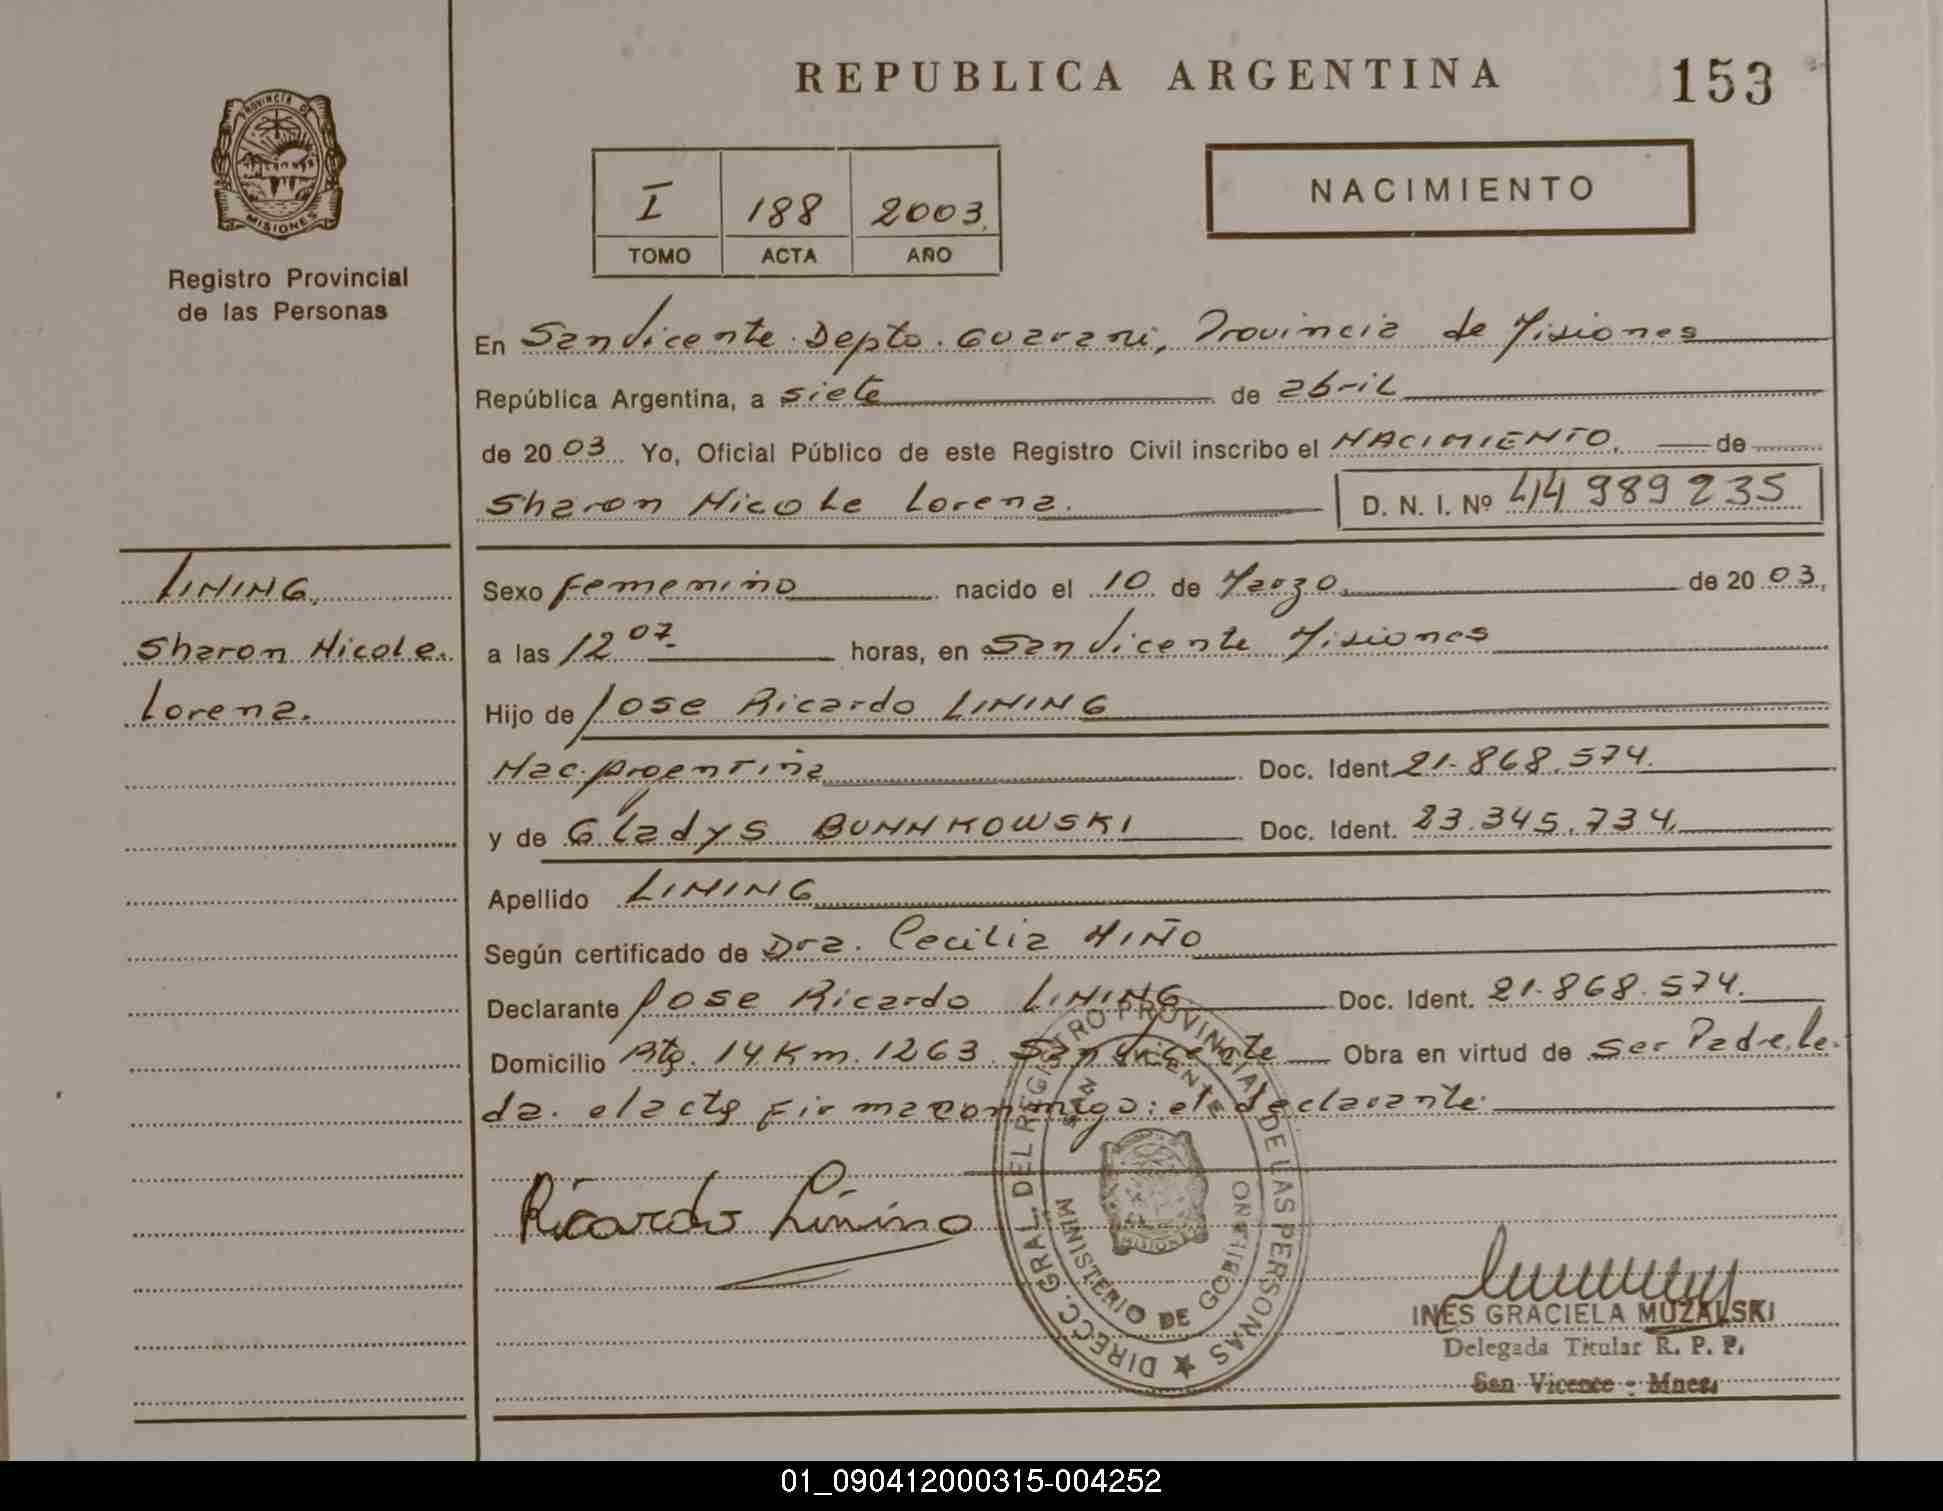 REPUBLICA ARGENTINA
153
PROVINCIA DE
MISIONES
Registro Provincial
de las Personas
I 188 2003
TOMO ACTA AÑO
NACIMIENTO
En San Vicente Depto. Guarani, Provincia de Misiones
República Argentina, a siete de abril
de 2003 Yo, Oficial Público de este Registro Civil inscribo el NACIMIENTO, de
Sharon Nicole Lorena. D. N. I. Nº 44989235
LINING,
Sharon Nicole.
Lorena.
Sexo femenino nacido el 10 de Marzo de 2003,
a las 12 07 horas, en San Vicente Misiones
Hijo de Jose Ricardo LINING
Nac. Argentina Doc. Ident. 21.868.574.
y de Gladys BUNNKOWSKI Doc. Ident. 23.345.734.
Apellido LINING
Según certificado de Dra. Cecilia MIÑO
Declarante Jose Ricardo LINING Doc. Ident. 21.868.574.
Domicilio Rta. 14 Km. 1263 San Vicente Obra en virtud de ser Padre. Le.
da. el acta firma conmigo: el declarante.
Ricardo Lining
DIRECC. GRAL. DEL REGISTRO PROVINCIAL DE LAS PERSONAS
SAN VICENTE
MINISTERIO DE GOBIERNO
MISIONES
INES GRACIELA MUZALSKI
Delegada Titular R. P. P.
San Vicente - Mnes.
01_090412000315-004252